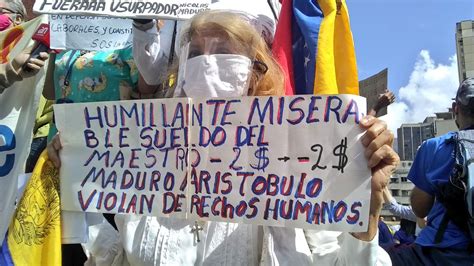 FUERAAA USURPADOR NICOLAS
MADURO
LABORALES, Y CONSTIT
S.O.S
HUMILLANTE MISERA-
BLE SUELDO DEL
MAESTRO - 2$ → - 2$
MADURO ARISTOBULO
VIOLAN DERECHOS HUMANOS.